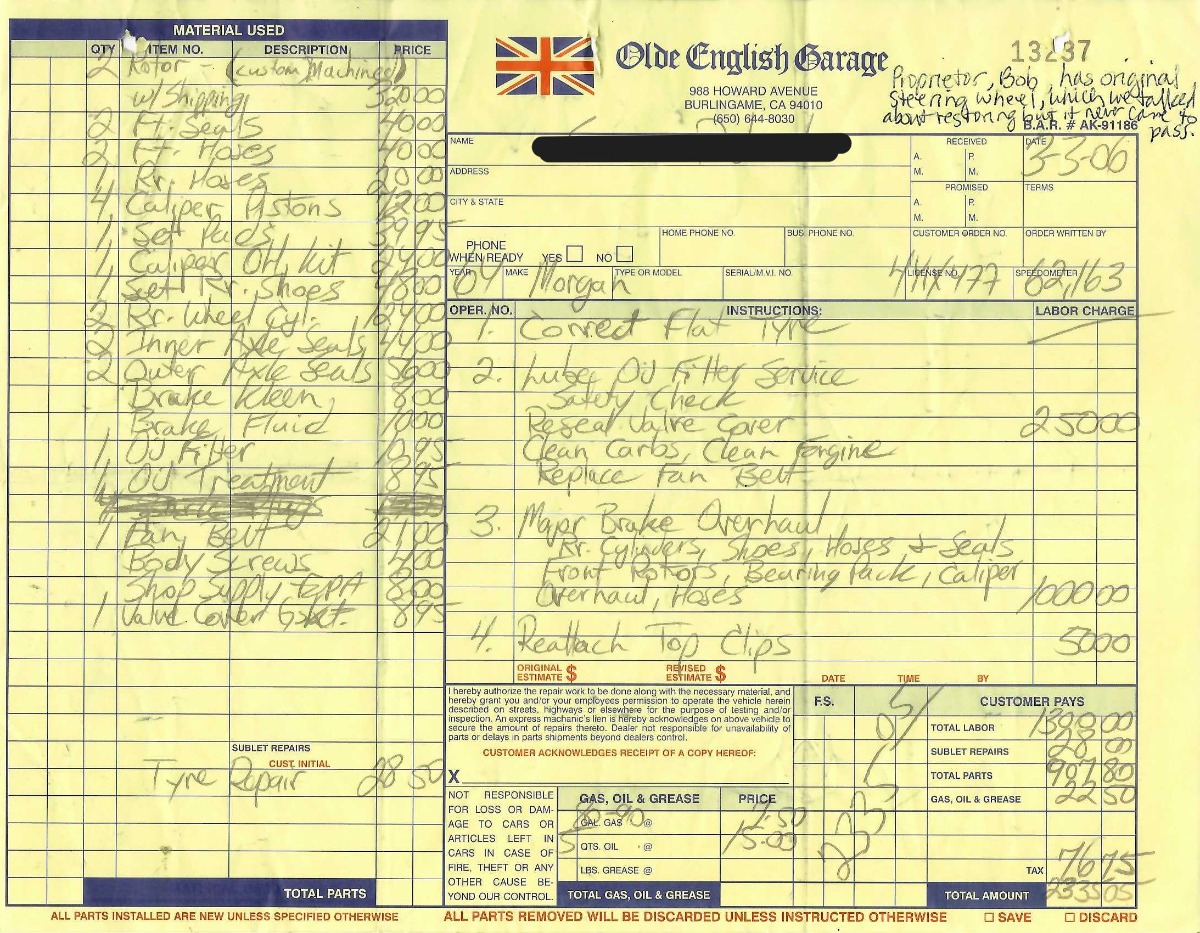 MATERIAL USED
QTY ITEM NO. DESCRIPTION PRICE
2 Rotor - (custom Machined)
w/ Shipping 320 00
2 Ft. Seals 40 00
2 Ft. Hoses 40 00
1 Rr. Hoses 20 00
4 Caliper Pistons 00
1 Set Pads 39 95
1 Caliper OH. Kit 24 00
1 Set Rr. Shoes 48 00
2 Rr. Wheel Cyl. 124 00
2 Inner Axle Seals 44 00
2 Outer Axle Seals 56 00
Brake Kleen 8 00
Brake Fluid 10 00
1 Oil Filter 10 95
1 Oil Treatment 8 95
1 Fan Belt 21 00
Body Screws 4 00
Shop Supply, EPA 8 00
1 Valve Cover Gskt. 8 95
SUBLET REPAIRS
CUST. INITIAL
Tyre Repair 28 50
TOTAL PARTS
Olde English Garage
988 HOWARD AVENUE
BURLINGAME, CA 94010
(650) 644-8030
13237
Proprietor, Bob, has original
steering wheel, which we talked
about restoring but it never came to
pass.
B.A.R. # AK-91186
NAME
RECEIVED
A. M. P. M.
DATE 3-3-06
ADDRESS
PROMISED
A. M. P. M.
TERMS
CITY & STATE
PHONE WHEN READY YES NO
HOME PHONE NO.
BUS. PHONE NO.
CUSTOMER ORDER NO.
ORDER WRITTEN BY
YEAR 64 MAKE Morgan TYPE OR MODEL SERIAL/M.V.I. NO. LICENSE NO. SPEEDOMETER 62,163
OPER. NO. INSTRUCTIONS: LABOR CHARGE
1. Correct Flat Tyre
2. Lube, Oil Filter Service
Safety Check
Reseal Valve Cover 250 00
Clean Carbs, Clean Engine
Replace Fan Belt
3. Major Brake Overhaul
Rr. Cylinders, Shoes, Hoses & Seals
Front Rotors, Bearing Pack, Caliper
Overhaul, Hoses 1000 00
4. Reattach Top Clips 50 00
ORIGINAL ESTIMATE $ REVISED ESTIMATE $ DATE TIME BY
I hereby authorize the repair work to be done along with the necessary material, and
hereby grant you and/or your employees permission to operate the vehicle herein
described on streets, highways or elsewhere for the purpose of testing and/or
inspection. An express mechanic's lien is hereby acknowledges on above vehicle to
secure the amount of repairs thereto. Dealer not responsible for unavailability of
parts or delays in parts shipments beyond dealers control.
CUSTOMER ACKNOWLEDGES RECEIPT OF A COPY HEREOF:
X
NOT RESPONSIBLE
FOR LOSS OR DAM-
AGE TO CARS OR
ARTICLES LEFT IN
CARS IN CASE OF
FIRE, THEFT OR ANY
OTHER CAUSE BE-
YOND OUR CONTROL.
GAS, OIL & GREASE PRICE
80-90 GAL. GAS @ 7.50
5 QTS. OIL @ 15.00
LBS. GREASE @
TOTAL GAS, OIL & GREASE
F.S. CUSTOMER PAYS
2335.05
TOTAL LABOR 1300 00
SUBLET REPAIRS 28 00
TOTAL PARTS 907 80
GAS, OIL & GREASE 22 50
TAX 76 75
TOTAL AMOUNT 2335 05
ALL PARTS INSTALLED ARE NEW UNLESS SPECIFIED OTHERWISE
ALL PARTS REMOVED WILL BE DISCARDED UNLESS INSTRUCTED OTHERWISE SAVE DISCARD